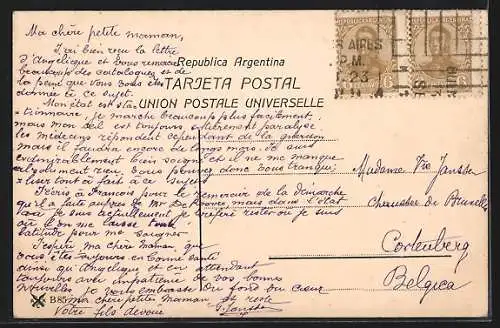 Ma chère petite maman,
J'ai bien reçu la lettre
d'Angelique et vous remercie
beaucoup des catalogues et de
la peine que vous vous êtes
donnée à ce sujet.
Mon état est sta-
tionnaire, je marche beaucoup plus facilement
mais mon œil est toujours entièrement paralysé
les médecins répondent cependant de la guérison
mais il faudra encore de longs mois. Je suis
admirablement bien soigné et il ne me manque
absolument rien. Vous pouvez donc vous tranqui-
liser tout à fait à ce sujet.
J'écris à François pour le remercier de la démarche
qu'il a faite auprès de Mr De mais dans l'état
où je suis actuellement je préfère rester où je suis
où on me laisse toute
latitude pour me soigner
J'espère ma chère maman, que
vous êtes toujours en bonne santé
ainsi qu'Angelique et en attendant
toujours avec impatience de vos bonnes
nouvelles je vous embrasse du fond du cœur
ma chère petite maman et reste
Votre fils dévoué
Republica Argentina
TARJETA POSTAL
UNION POSTALE UNIVERSELLE
AIRES
P.M.
23
6
6
Madame Vve Janssen
Chaussée de Bruxelles
Cortenberg
Belgica